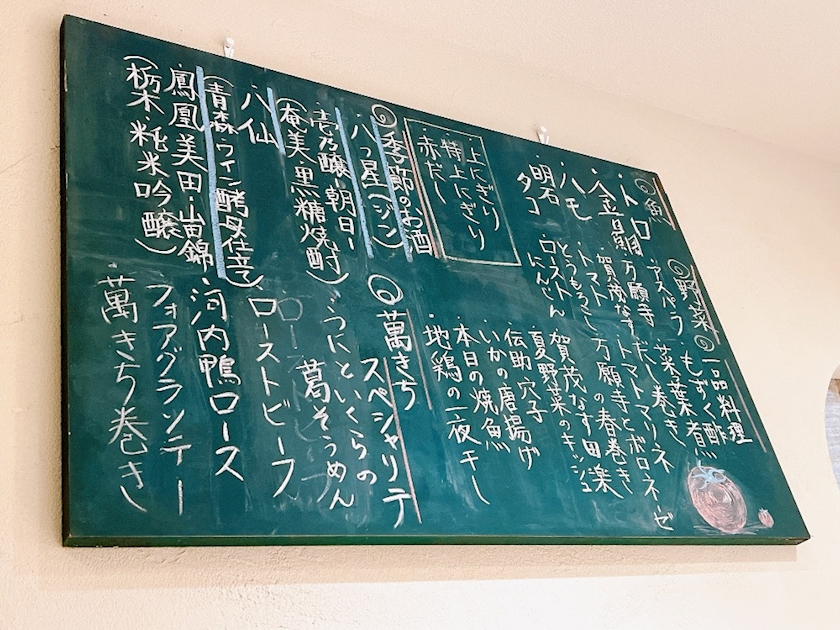 ◎魚
・トロ
・金目鯛
・ハモ
・明石タコ
・上にぎり
・特上にぎり
・赤だし
◎野菜
・アスパラ
・万願寺
・賀茂なす
・トマト
・とうもろこし
・ローストにんじん
◎一品料理
・もずく酢
・菜葉煮
・だし巻き
・トマトマリネ
・万願寺とボロネーゼの春巻き
・賀茂なす田楽
・夏野菜のキッシュ
・伝助穴子
・いかの唐揚げ
・本日の焼魚
・地鶏の一夜干し
◎季節のお酒
・八つ星(ジン)
・壱乃醸朝日
(奄美・黒糖焼酎)
・八仙
(青森・ワイン酵母仕立て)
・鳳凰美田・山田錦
(栃木・純米吟醸)
◎萬きち
スペシャリテ
・うにといくらの
葛そうめん
・ローストビーフ
・河内鴨ロース
・フォアグラソテー
・萬きち巻き